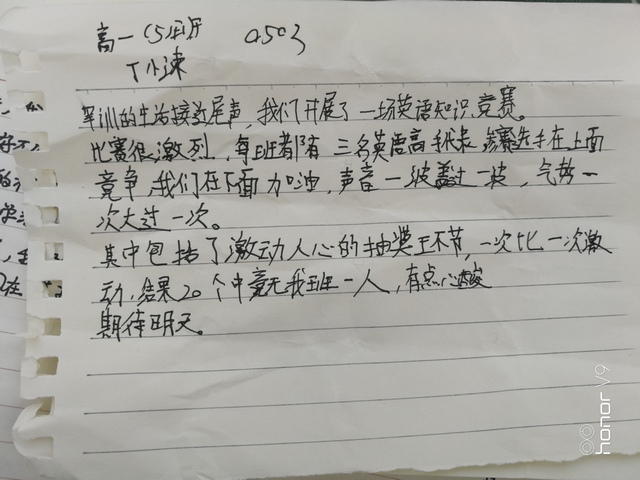 高一（5）班 0503
丁小涑
军训的生活接近尾声，我们开展了一场英语知识竞赛。
比赛很激烈，每班都有三名英语高手代表参赛选手在上面
竞争，我们在下面加油，声音一波盖过一波，气势一
次大过一次。
其中包括了激动人心的抽奖环节，一次比一次激
动，结果20个中竟无我班一人，有点心酸
期待明天。
honor V9